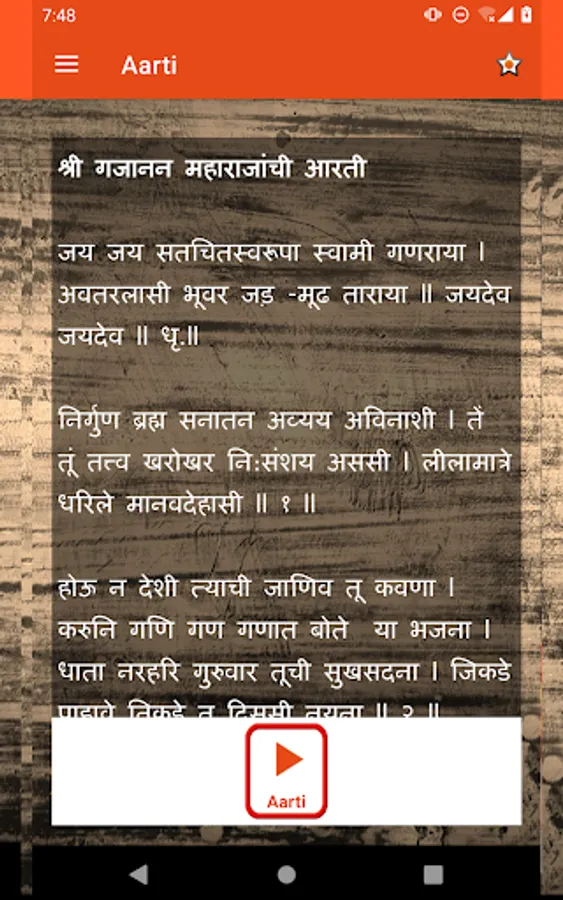 7:48
Aarti
श्री गजानन महाराजांची आरती
जय जय सतचितस्वरूपा स्वामी गणराया ।
अवतरलासी भूवर जड़ -मूढ ताराया ॥ जयदेव
जयदेव ॥ धृ.॥
निर्गुण ब्रह्म सनातन अव्यय अविनाशी । तें
तूं तत्त्व खरोखर नि:संशय अससी । लीलामात्रे
धरिले मानवदेहासी ॥ १ ॥
होऊ न देशी त्याची जाणिव तू कवणा ।
करुनि गणि गण गणात बोते या भजना ।
धाता नरहरि गुरुवार तूची सुखसदना । जिकडे
Aarti